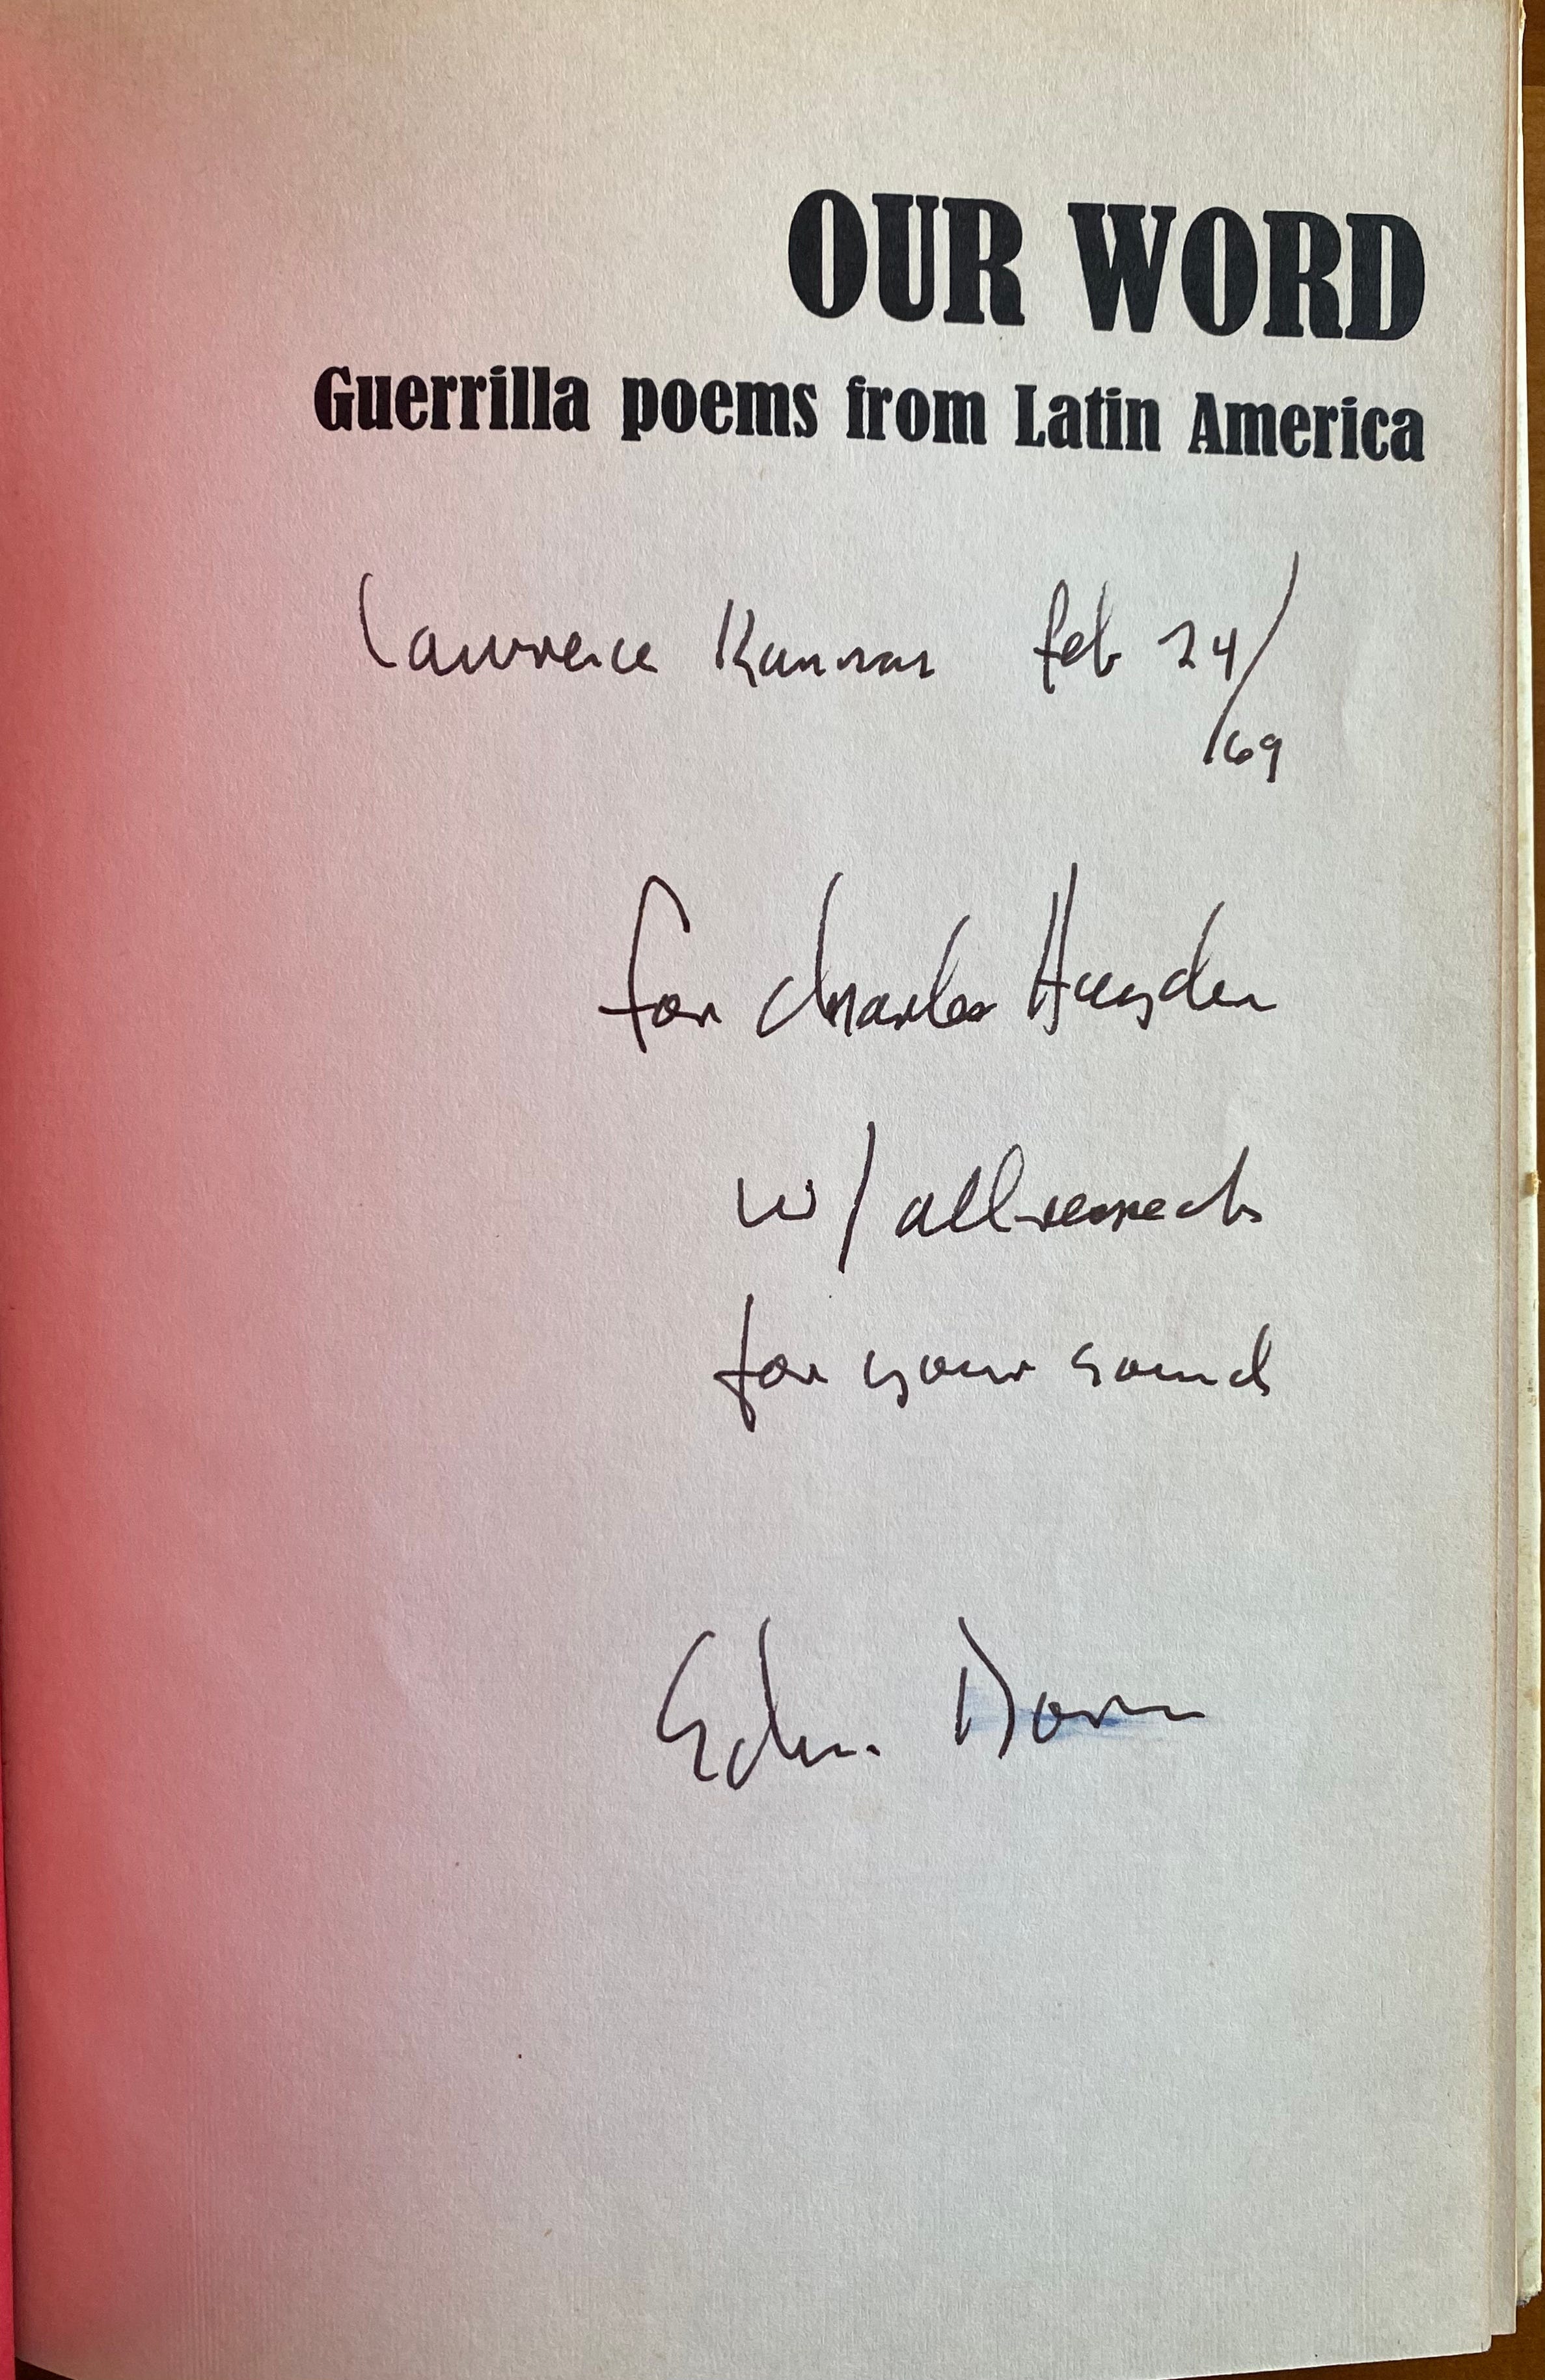 OUR WORD
Guerrilla poems from Latin America
Lawrence Kansas Feb 24/
/69
for Charles
w/ all respects
for your sound
Edw. Dorn